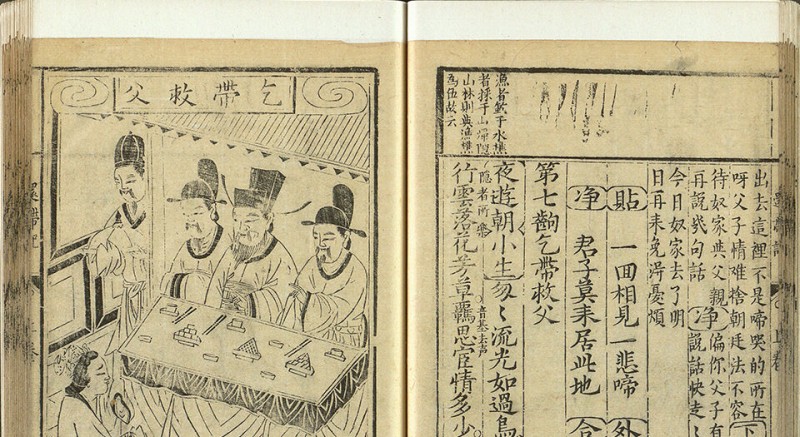 出去這裡不是啼哭的所在
呀父子情难捨朝廷法不容 下
待奴家與父親 净 偏你父子有
再說幾句話 說話快走
今日奴家去了明
日再来免淂憂煩
貼 一回相見一悲啼 外
净 君子莫来居此地 合
第七齣乞帶救父
夜遊朝 小生 匆〻流光如過鳥
行雲落花芳草羈思宦情多少
音基去声
隐者所樂
者採于山
山林則與漁樵
為伍故云
乞帶救父